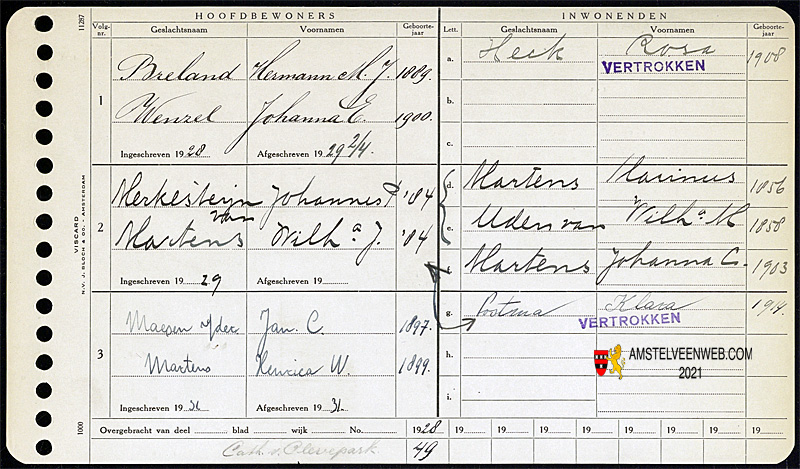 HOOFDBEWONERS
INWONENDEN
Volg-nr. Geslachtsnaam Voornamen Geboorte-jaar
Lett. Geslachtsnaam Voornamen Geboorte-jaar
11287
1
Breland Hermann M. J. 1889.
Wenzel Johanna E. 1900.
Ingeschreven 19 28 Afgeschreven 19 29 2/4.
a. Heek Rosa 1908
VERTROKKEN
b.
c.
VISCARD
N.V. J. BLOCH & CO. AMSTERDAM
2
Merkesteijn van Johannes P '84
Martens Wilh.a J. '84
Ingeschreven 19 29 Afgeschreven 19
d. Martens Marinus 1856
e. Uden van Wilh.a M 1858
f. Martens Johanna C. 1903
3
Maesen v/der Jan. C. 1897.
Martens Henrica W. 1899.
Ingeschreven 19 31 Afgeschreven 19 31.
g. Postma Klara 1914.
VERTROKKEN
h.
i.
AMSTELVEENWEB.COM
2021
1000
Overgebracht van deel blad wijk No. 1928 19 19 19 19 19 19 19 19
Cath. v. Clevepark 49